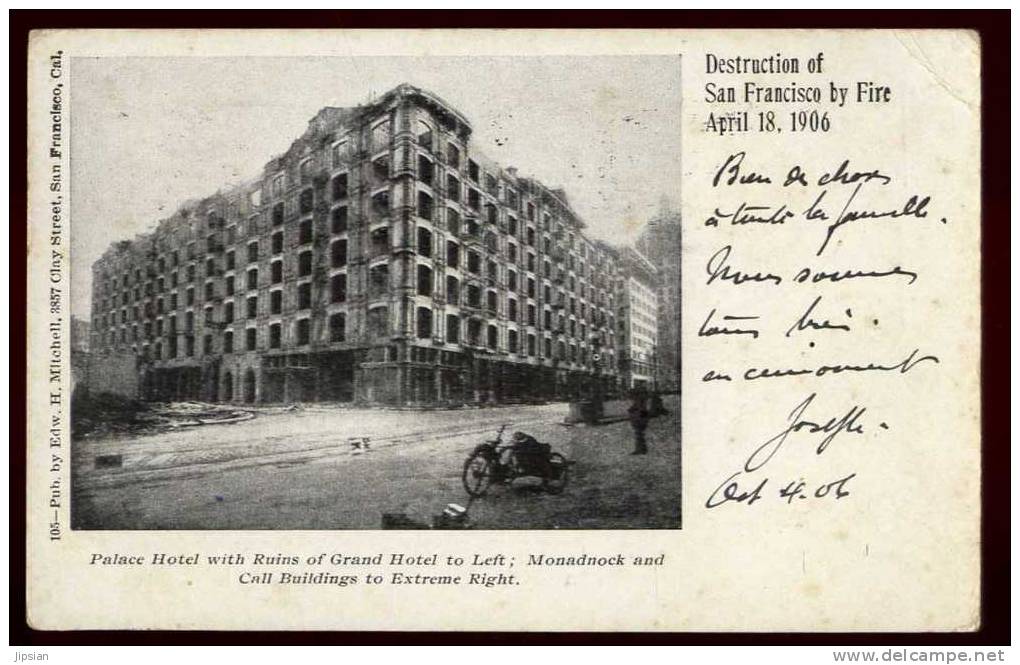 105—Pub. by Edw. H. Mitchell, 3857 Clay Street, San Francisco, Cal.
Destruction of
San Francisco by Fire
April 18, 1906
Bien de choses
à toute la famille.
Nous sommes
tous bien.
en ce moment
Joseph.
Oct 4. 06
Palace Hotel with Ruins of Grand Hotel to Left; Monadnock and
Call Buildings to Extreme Right.
jipsian
www.delcampe.net